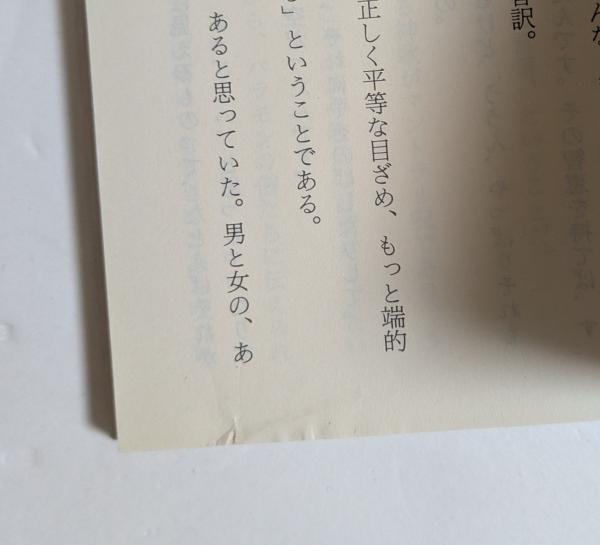 んな
訳。
正しく平等な目ざめ、もっと端的
」ということである。
あると思っていた。男と女の、あ